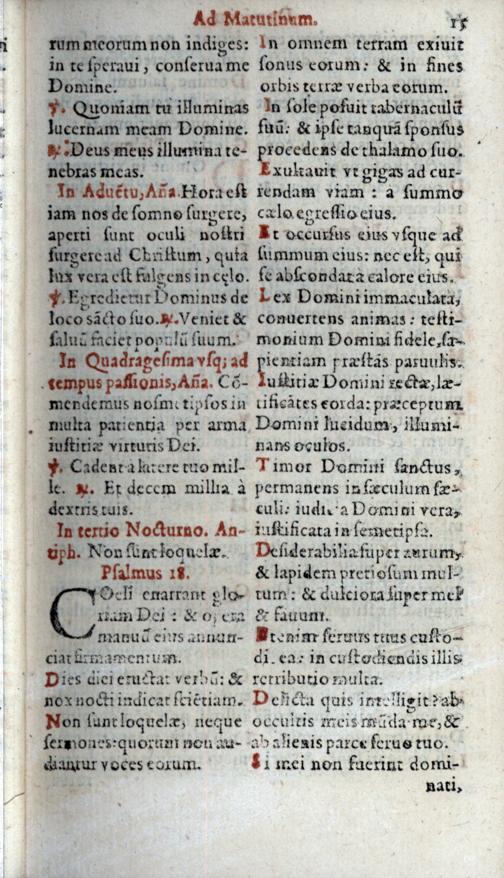 Ad Matutinum. 15
rum meorum non indiges:
in te speraui, conserua me
Domine.
℣. Quoniam tu illuminas
lucernam meam Domine.
℟. Deus meus illumina te-
nebras meas.
In Aduẽtu, Aña. Hora est
iam nos de somno surgere,
aperti sunt oculi nostri
surgere ad Christum, quia
lux vera est fulgens in cęlo.
℣. Egredietur Dominus de
loco sãcto suo. ℟. Veniet &
saluũ faciet populũ suum.
In Quadragesima vsq; ad
tempus passionis, Aña. Cõ-
mendemus nosmetipsos in
multa patientia per arma
iustitiæ virtutis Dei.
℣. Cadent à latere tuo mil-
le. ℟. Et decem millia à
dextris tuis.
In tertio Nocturno. An-
tiph. Non sunt loquelæ.
Psalmus 18.
COeli enarrant glo-
riam Dei: & opera
manuũ eius annun-
ciat firmamentum.
Dies diei eructat verbũ: &
nox nocti indicat sciẽtiam.
Non sunt loquelæ, neque
sermones: quorum non au-
diantur voces eorum.
In omnem terram exiuit
sonus eorum: & in fines
orbis terræ verba eorum.
In sole posuit tabernaculũ
suũ: & ipse tanquã sponsus
procedens de thalamo suo.
Exultauit vt gigas ad cur-
rendam viam: a summo
cælo egressio eius.
Et occursus eius vsque ad
summum eius: nec est, qui
se abscondat à calore eius.
Lex Domini immaculata,
conuertens animas: testi-
monium Domini fidele, sa-
pientiam præstãs paruulis.
Iustitiæ Domini rectæ, læ-
tificãtes corda: præceptum
Domini lucidum, illumi-
nans oculos.
Timor Domini sanctus,
permanens in sæculum sæ-
culi: iudicia Domini vera,
iustificata in semetipsa.
Desiderabilia super aurum,
& lapidem pretiosum mul-
tum: & dulciora super mel
& fauum.
Etenim seruus tuus custo-
di. ea: in custodiendis illis
retributio multa.
Delicta quis intelligit? ab
occultis meis mũda me, &
ab alienis parce seruo tuo.
Si mei non fuerint domi-
nati,